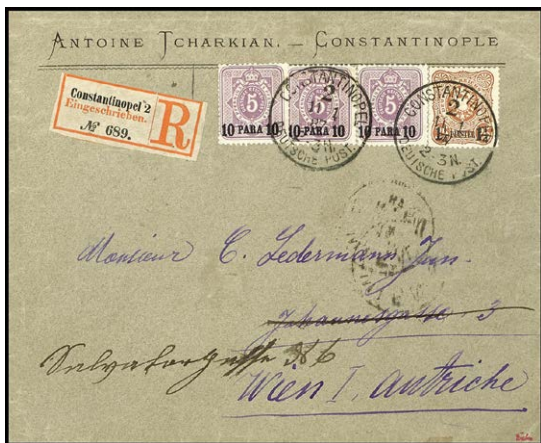 ANTOINE TCHARKIAN. — CONSTANTINOPLE
Constantinopel 2
Eingeschrieben.
№ 689.
R
5 5 5
10 PARA 10 10 PARA 10 10 PARA 10
CONSTANTINOPEL
2
2-3N.
DEUTSCHE POST.
CONSTANTINOPEL
2
2-3N.
DEUTSCHE POST.
Monsieur C. Ledermann Jun.
Johannesgasse 3
Salvatorgasse № 6
Wien I. Autriche